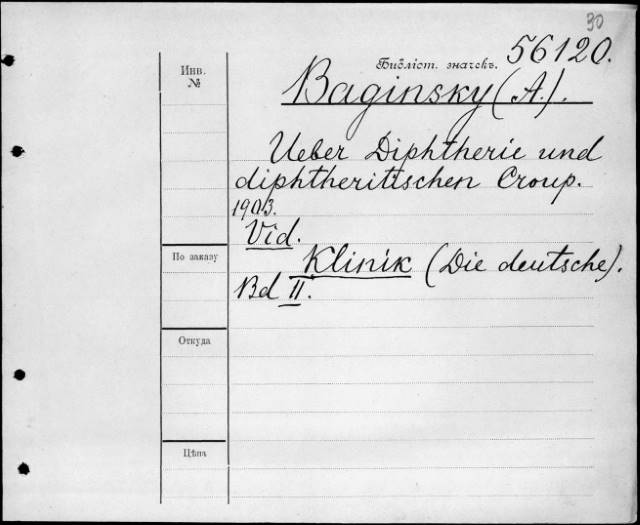 30
Библіот. значекъ. 56120.
Инв.
№
Baginsky (A.).
Ueber Diphtherie und
diphtheritischen Croup.
1903.
Vid.
По заказу
Klinik (Die deutsche).
Bd II.
Откуда
Цѣна